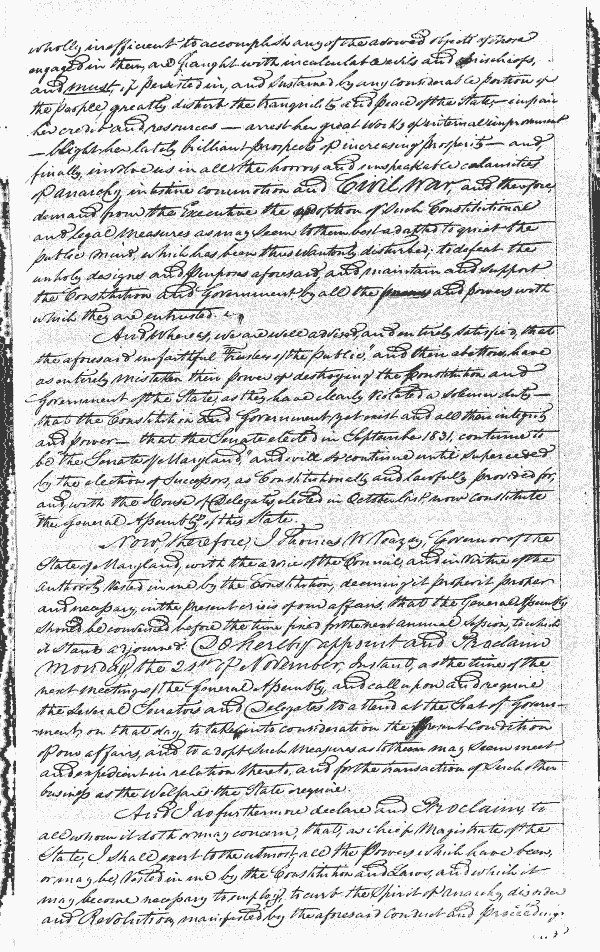 wholly inefficient to accomplish any of the avowed objects of those
engaged in them, are fraught with incalculable evils and mischiefs,
and must, if persisted in, and sustained by any considerable portion of
the People greatly disturb the tranquility and peace of the State, — impair
her credit and resources — arrest her great works of internal improvement
— blight her lately brilliant prospects of increasing prosperity — and,
finally, involve us in all the horrors and unspeakable calamities
of anarchy, intestine commotion and Civil War, and therefore,
demand from the Executive the adoption of such Constitutional
and legal measures as may seem to them best adapted to quiet the
public mind, which has been thus wantonly disturbed; to defeat the
unholy designs and purposes aforesaid, and, maintain and support
the Constitution and Government by all the means and powers with
which they are entrusted.
And Whereas, we are well advised, and entirely satisfied, that
the aforesaid unfaithful "Trustees of the Public," and their abettors, have
as entirely mistaken their power of destroying the Constitution and
Government of the State, as they have clearly violated a solemn duty —
that the Constitution and Government, yet exist and all their integrity
and power — that the Senate elected in September 1831, continue to
be "the Senate of Maryland," and will so continue until superceded
by the election of Successors, as Constitutionally and lawfully provided for,
and, with the House of Delegates, elected in October last, now constitute
the General Assembly of this State.
Now, therefore, I Thomas W. Veazey, Governor of the
State of Maryland, with the advice of the Council, and in virtue of the
authority vested in me by the Constitution, deeming it proper
and necessary, in the present crisis of our affairs, that the General Assembly
should be convened before the time fixed for the next annual Session, to which
it stands adjourned. Do hereby appoint and Proclaim
Monday, the 21st of November, Instant, as the time of the
next meeting of the General Assembly, and call upon and require
the several Senators and Delegates to attend at the Seat of Govern-
ment, on that day, to take into consideration the present Condition
of our affairs, and to adopt such measures as to them may seem meet
and expedient in relation thereto, and for the transaction of such other
business as the Welfare the State require.
And I do furthermore declare and Proclaim, to
all whom it doth or may concern, that, as chief Magistrate of the
State, I shall exert to the utmost, all the Powers which have been,
or may be, vested in me by the Constitution and Laws, and which it
may become necessary to employ, to curb the Spirit of anarchy, disorder
and Revolution, manifested by the aforesaid conduct and proceedings